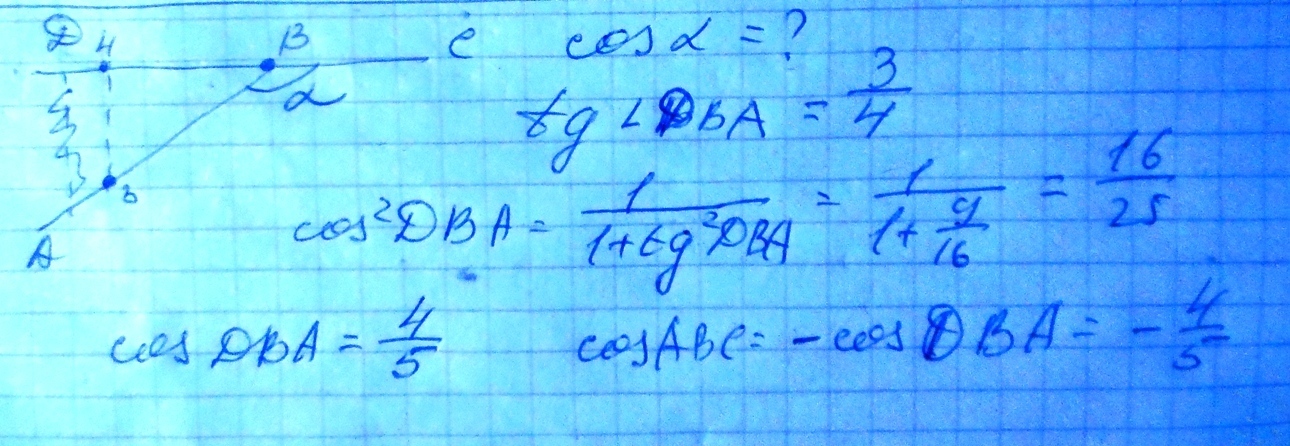 D 4 B C cos α = ?
α
tg ∠DBA = 3/4
3
A
cos²DBA = 1/(1+tg²DBA) = 1/(1+9/16) = 16/25
cos DBA = 4/5 cosABC = -cos DBA = -4/5